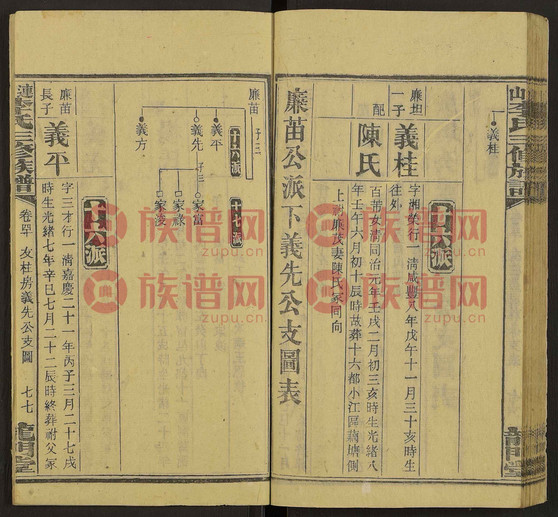 義桂
十六派
廉坦一子
義桂
字湘榮行一清咸豐八年戊午十一月三十亥時生
往外
配
陳氏
百苗女清同治元年壬戌二月初三亥時生光緒八
年壬午六月初十辰時故葬十六都小江區藕塘側
上祔廉茂妻陳氏冢同向
廉苗公派下義先公支圖表
廉苗
子三
十六派
義平
義先
義方
子三
十七派
家富
家祿
家凌
十六派
廉苗長子
義平
字三才行一清嘉慶二十一年丙子三月二十七戌
時生光緒七年辛巳七月二十二辰時終葬祔父冢
漣
氏三修族譜
卷四十
友桂房義先公支圖
七七
龍門堂
族谱网
zupu.cn